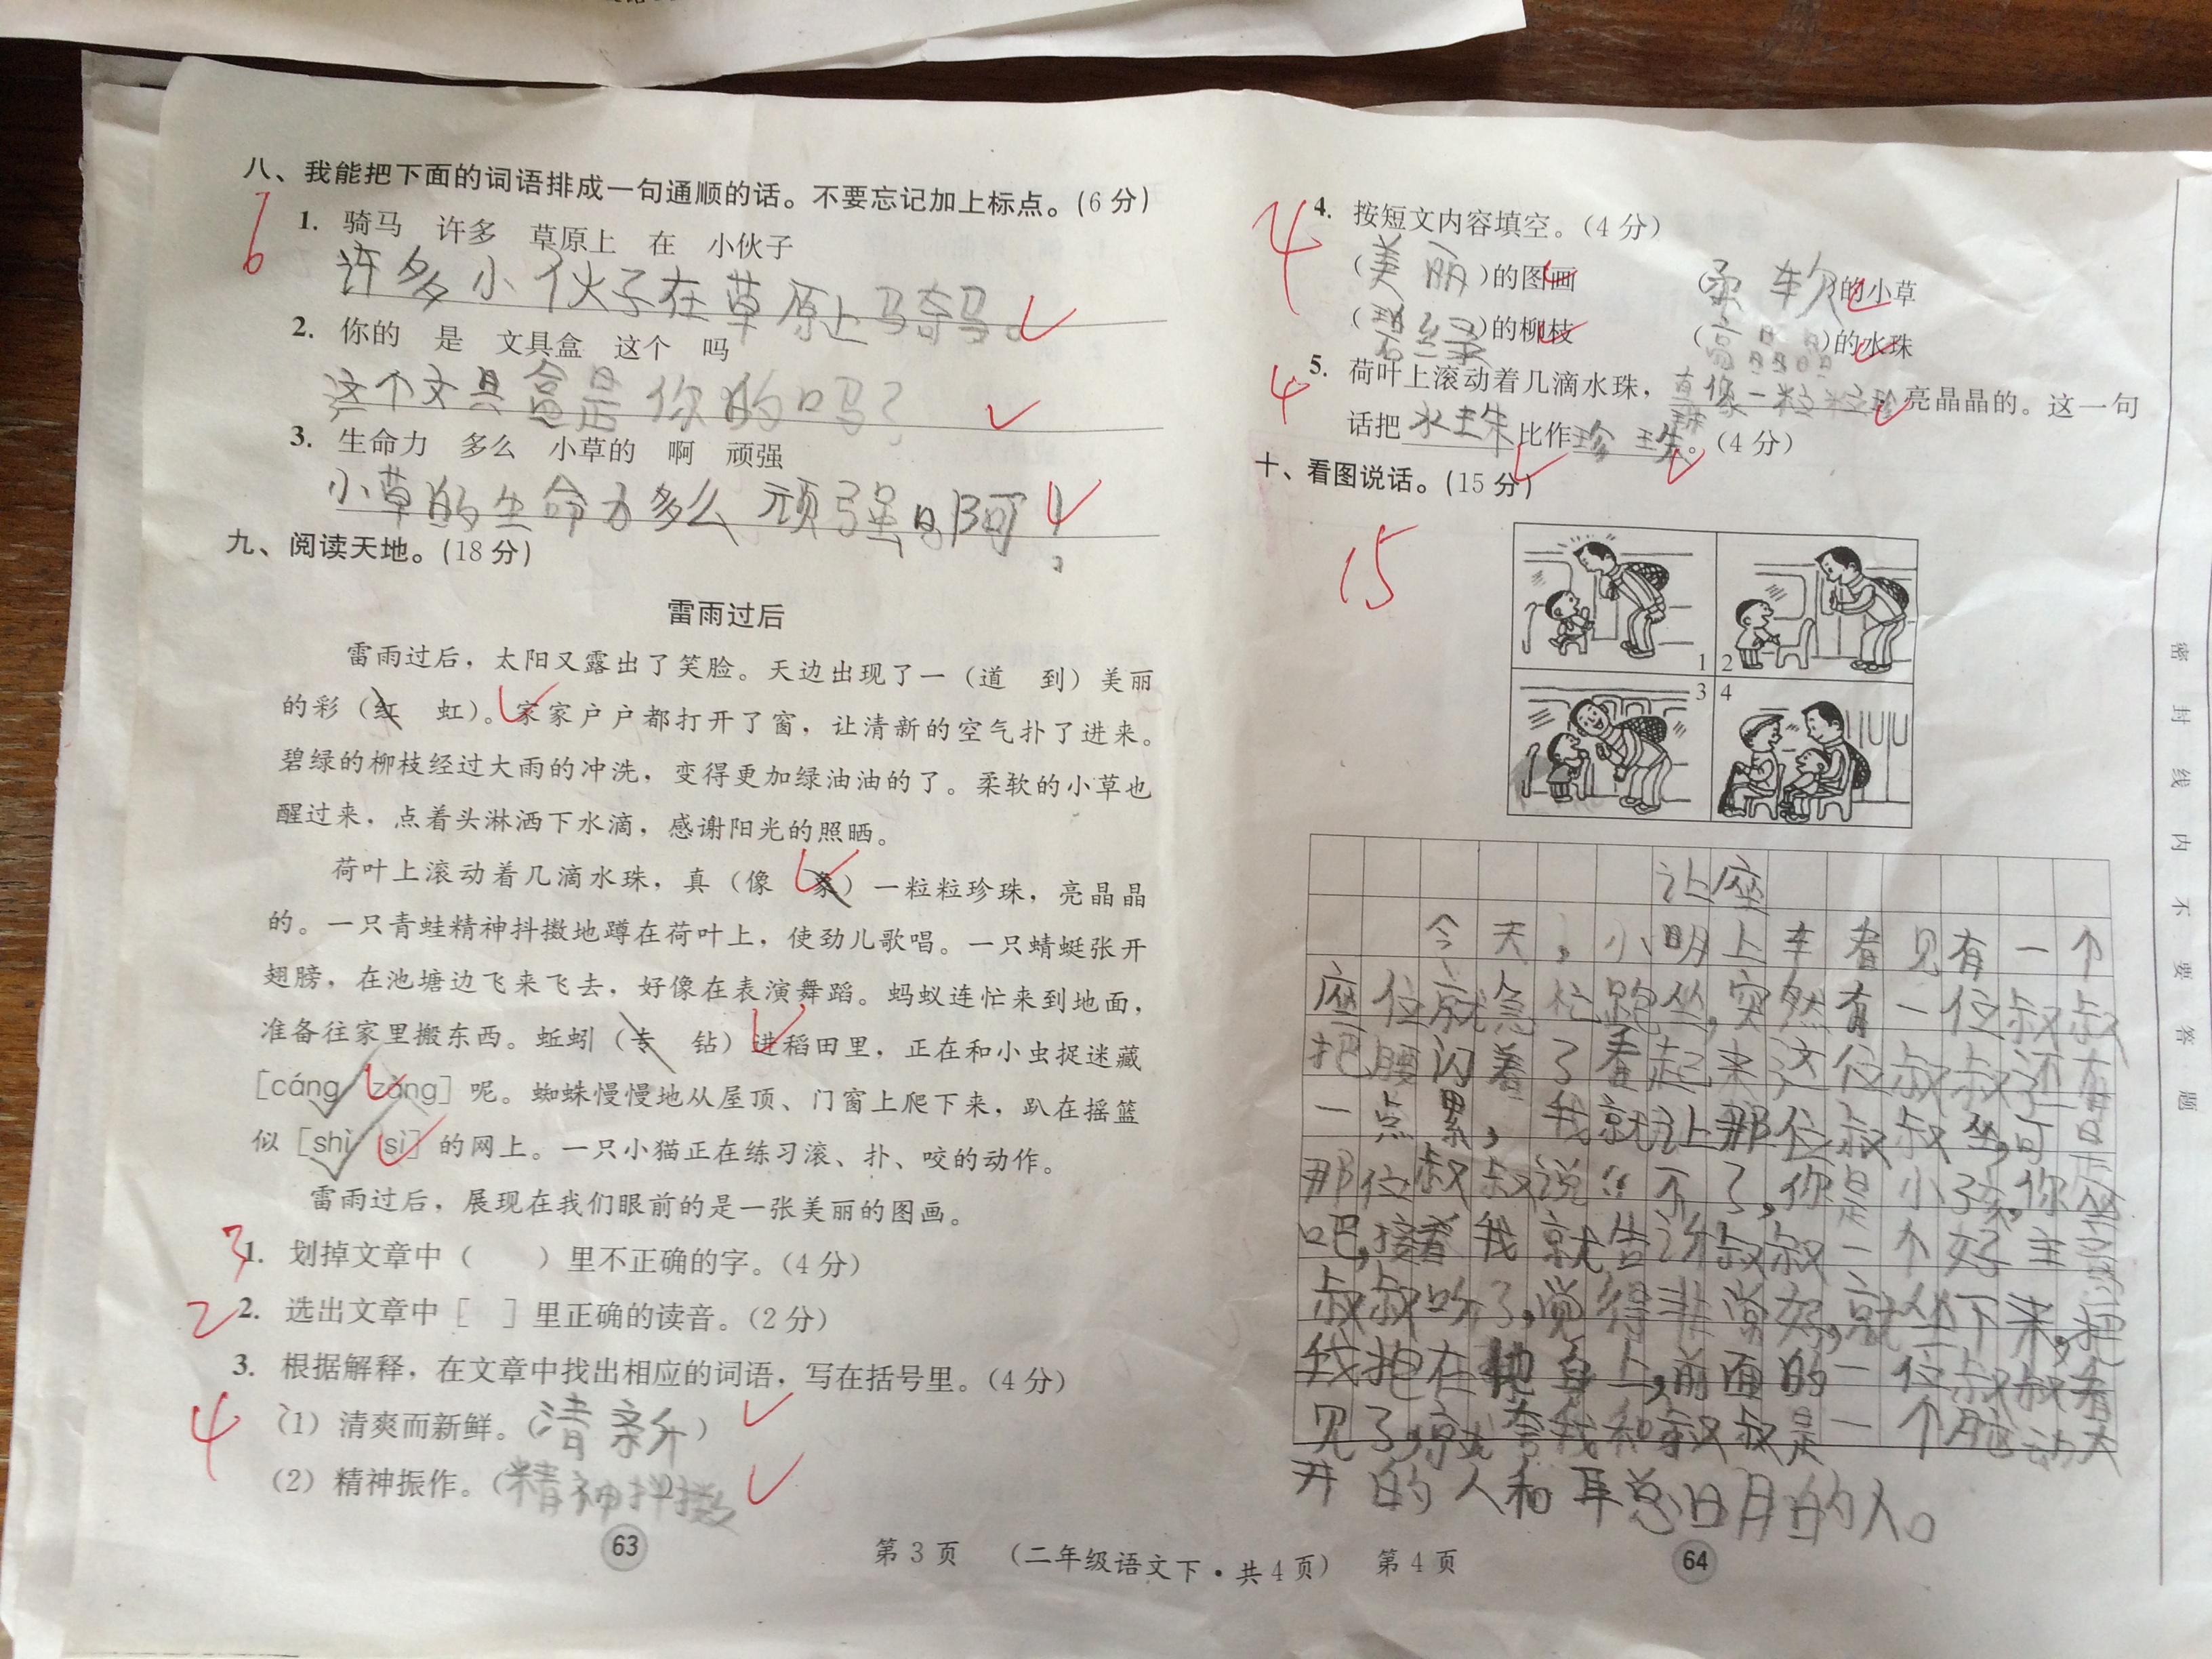 八、我能把下面的词语排成一句通顺的话。不要忘记加上标点。(6分)
6
1. 骑马 许多 草原上 在 小伙子
许多小伙子在草原上骑马。
2. 你的 是 文具盒 这个 吗
这个文具盒是你的吗？
3. 生命力 多么 小草的 啊 顽强
小草的生命力多么顽强啊！
九、阅读天地。(18分)
雷雨过后
雷雨过后，太阳又露出了笑脸。天边出现了一（道 到）美丽
的彩（红 虹）。家家户户都打开了窗，让清新的空气扑了进来。
碧绿的柳枝经过大雨的冲洗，变得更加绿油油的了。柔软的小草也
醒过来，点着头淋洒下水滴，感谢阳光的照晒。
荷叶上滚动着几滴水珠，真（像 象）一粒粒珍珠，亮晶晶
的。一只青蛙精神抖擞地蹲在荷叶上，使劲儿歌唱。一只蜻蜓张开
翅膀，在池塘边飞来飞去，好像在表演舞蹈。蚂蚁连忙来到地面，
准备往家里搬东西。蚯蚓（专 钻）进稻田里，正在和小虫捉迷藏
［cáng zàng］呢。蜘蛛慢慢地从屋顶、门窗上爬下来，趴在摇篮
似［shì sì］的网上。一只小猫正在练习滚、扑、咬的动作。
雷雨过后，展现在我们眼前的是一张美丽的图画。
3
1. 划掉文章中（ ）里不正确的字。(4分)
2
2. 选出文章中［ ］里正确的读音。(2分)
3. 根据解释，在文章中找出相应的词语，写在括号里。(4分)
4
（1）清爽而新鲜。（清新）
（2）精神振作。（精神抖擞）
63
第3页 （二年级语文下·共4页） 第4页
4
4. 按短文内容填空。(4分)
（美丽）的图画 （柔软）的小草
（碧绿）的柳枝 （亮晶晶）的水珠
4
5. 荷叶上滚动着几滴水珠，真像一粒粒珍珠亮晶晶的。这一句
话把水珠比作珍珠。(4分)
十、看图说话。(15分)
15
1 2
3 4
让座
今天，小明上车看见有一个
座位就急忙跑坐，突然有一位叔叔
把腰闪着了看起来这位叔叔还有
一点累，我就让那位叔叔坐，可是
那位叔叔说：“不了，你是小孩，你坐
吧，接着我就告诉叔叔一个好主意
叔叔听了，觉得非常好，就坐下来，把
我抱在他身上，前面的一位叔叔看
见了，就夸我和叔叔是一个脑动大
开的人和聪明的人。
64
密封线内不要答题